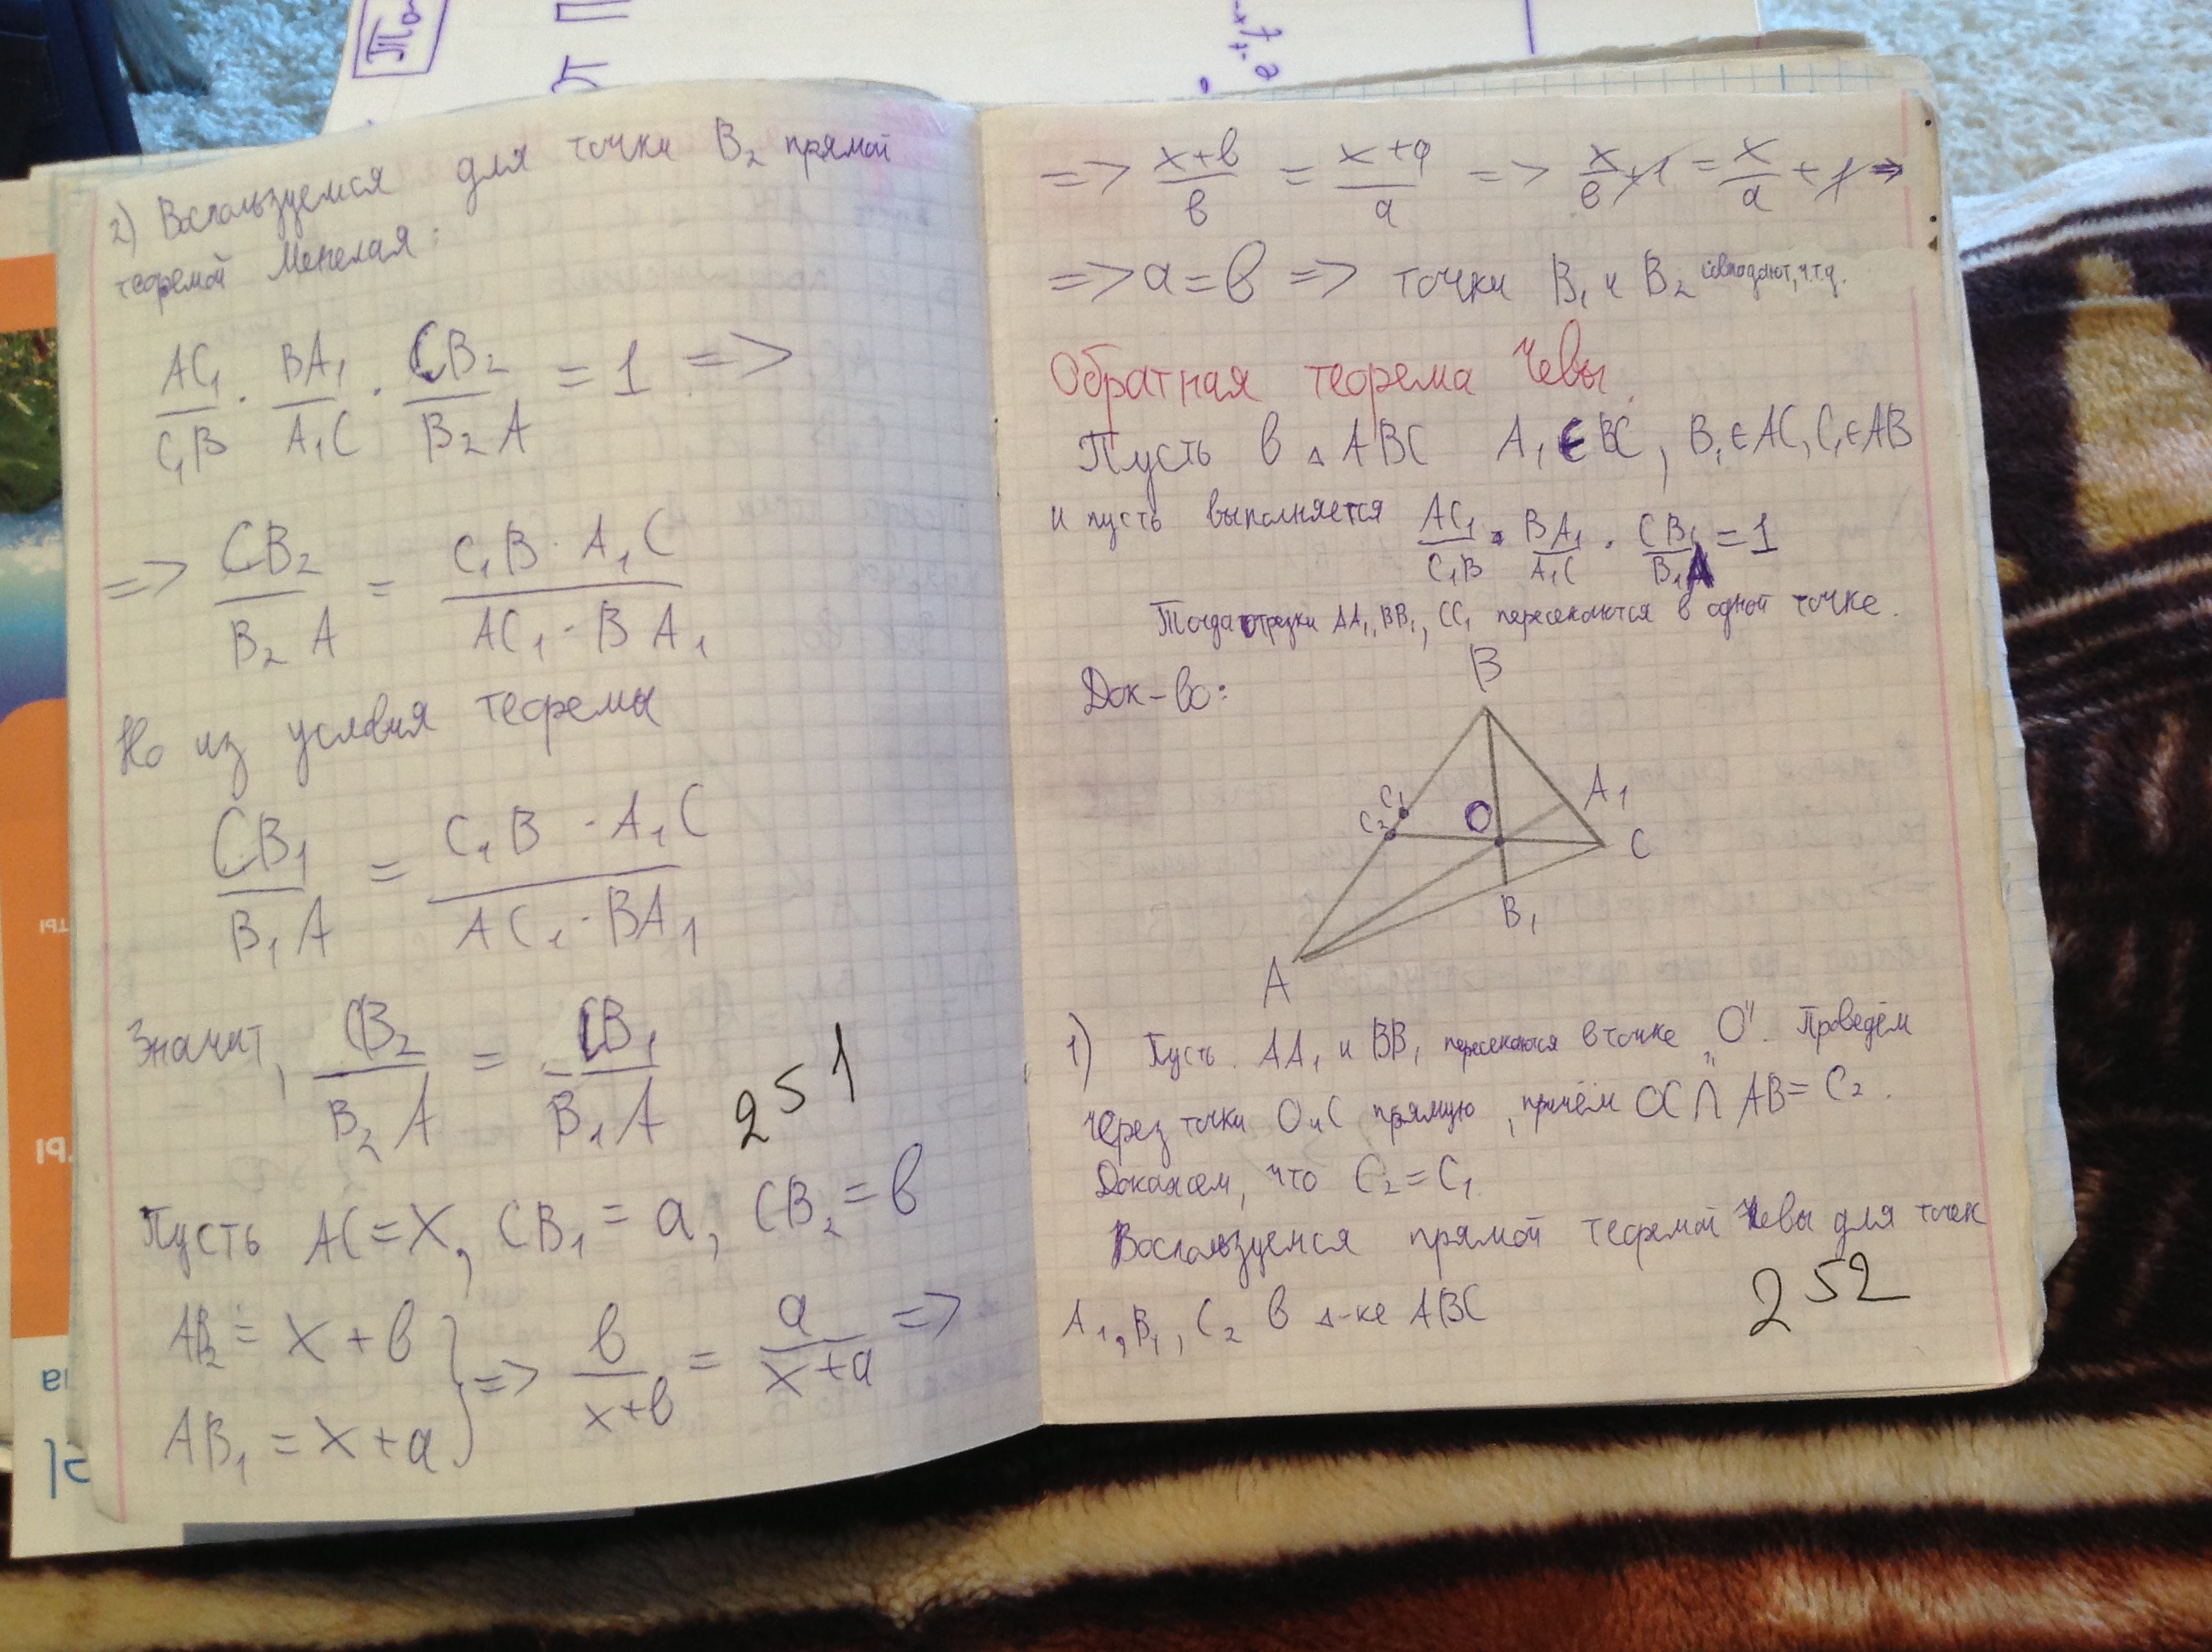 2) Воспользуемся для точки B₂ прямой
теоремой Менелая:
AC₁/C₁B · BA₁/A₁C · CB₂/B₂A = 1 =>
=> CB₂/B₂A = C₁B · A₁C / AC₁ · BA₁
Но из условия теоремы
CB₁/B₁A = C₁B · A₁C / AC₁ · BA₁
Значит, CB₂/B₂A = CB₁/B₁A
251
Пусть AC = x, CB₁ = a, CB₂ = b
AB₂ = x + b
AB₁ = x + a } => b/x+b = a/x+a =>
=> x+b/b = x+a/a => x/b + 1 = x/a + 1 =>
=> a = b => точки B₁ и B₂ совпадают, ч.т.д.
Обратная теорема Чевы.
Пусть в △ABC A₁ ∈ BC, B₁ ∈ AC, C₁ ∈ AB
и пусть выполняется AC₁/C₁B · BA₁/A₁C · CB₁/B₁A = 1
Тогда отрезки AA₁, BB₁, CC₁ пересекаются в одной точке.
Док-во:
B
C₁
C₂
O
A₁
C
B₁
A
1) Пусть AA₁ и BB₁ пересекаются в точке „O". Проведём
через точки O и C прямую, причём OC ∩ AB = C₂.
Докажем, что C₂ = C₁
Воспользуемся прямой теоремой Чевы для точек
A₁, B₁, C₂ в △-ке ABC
252